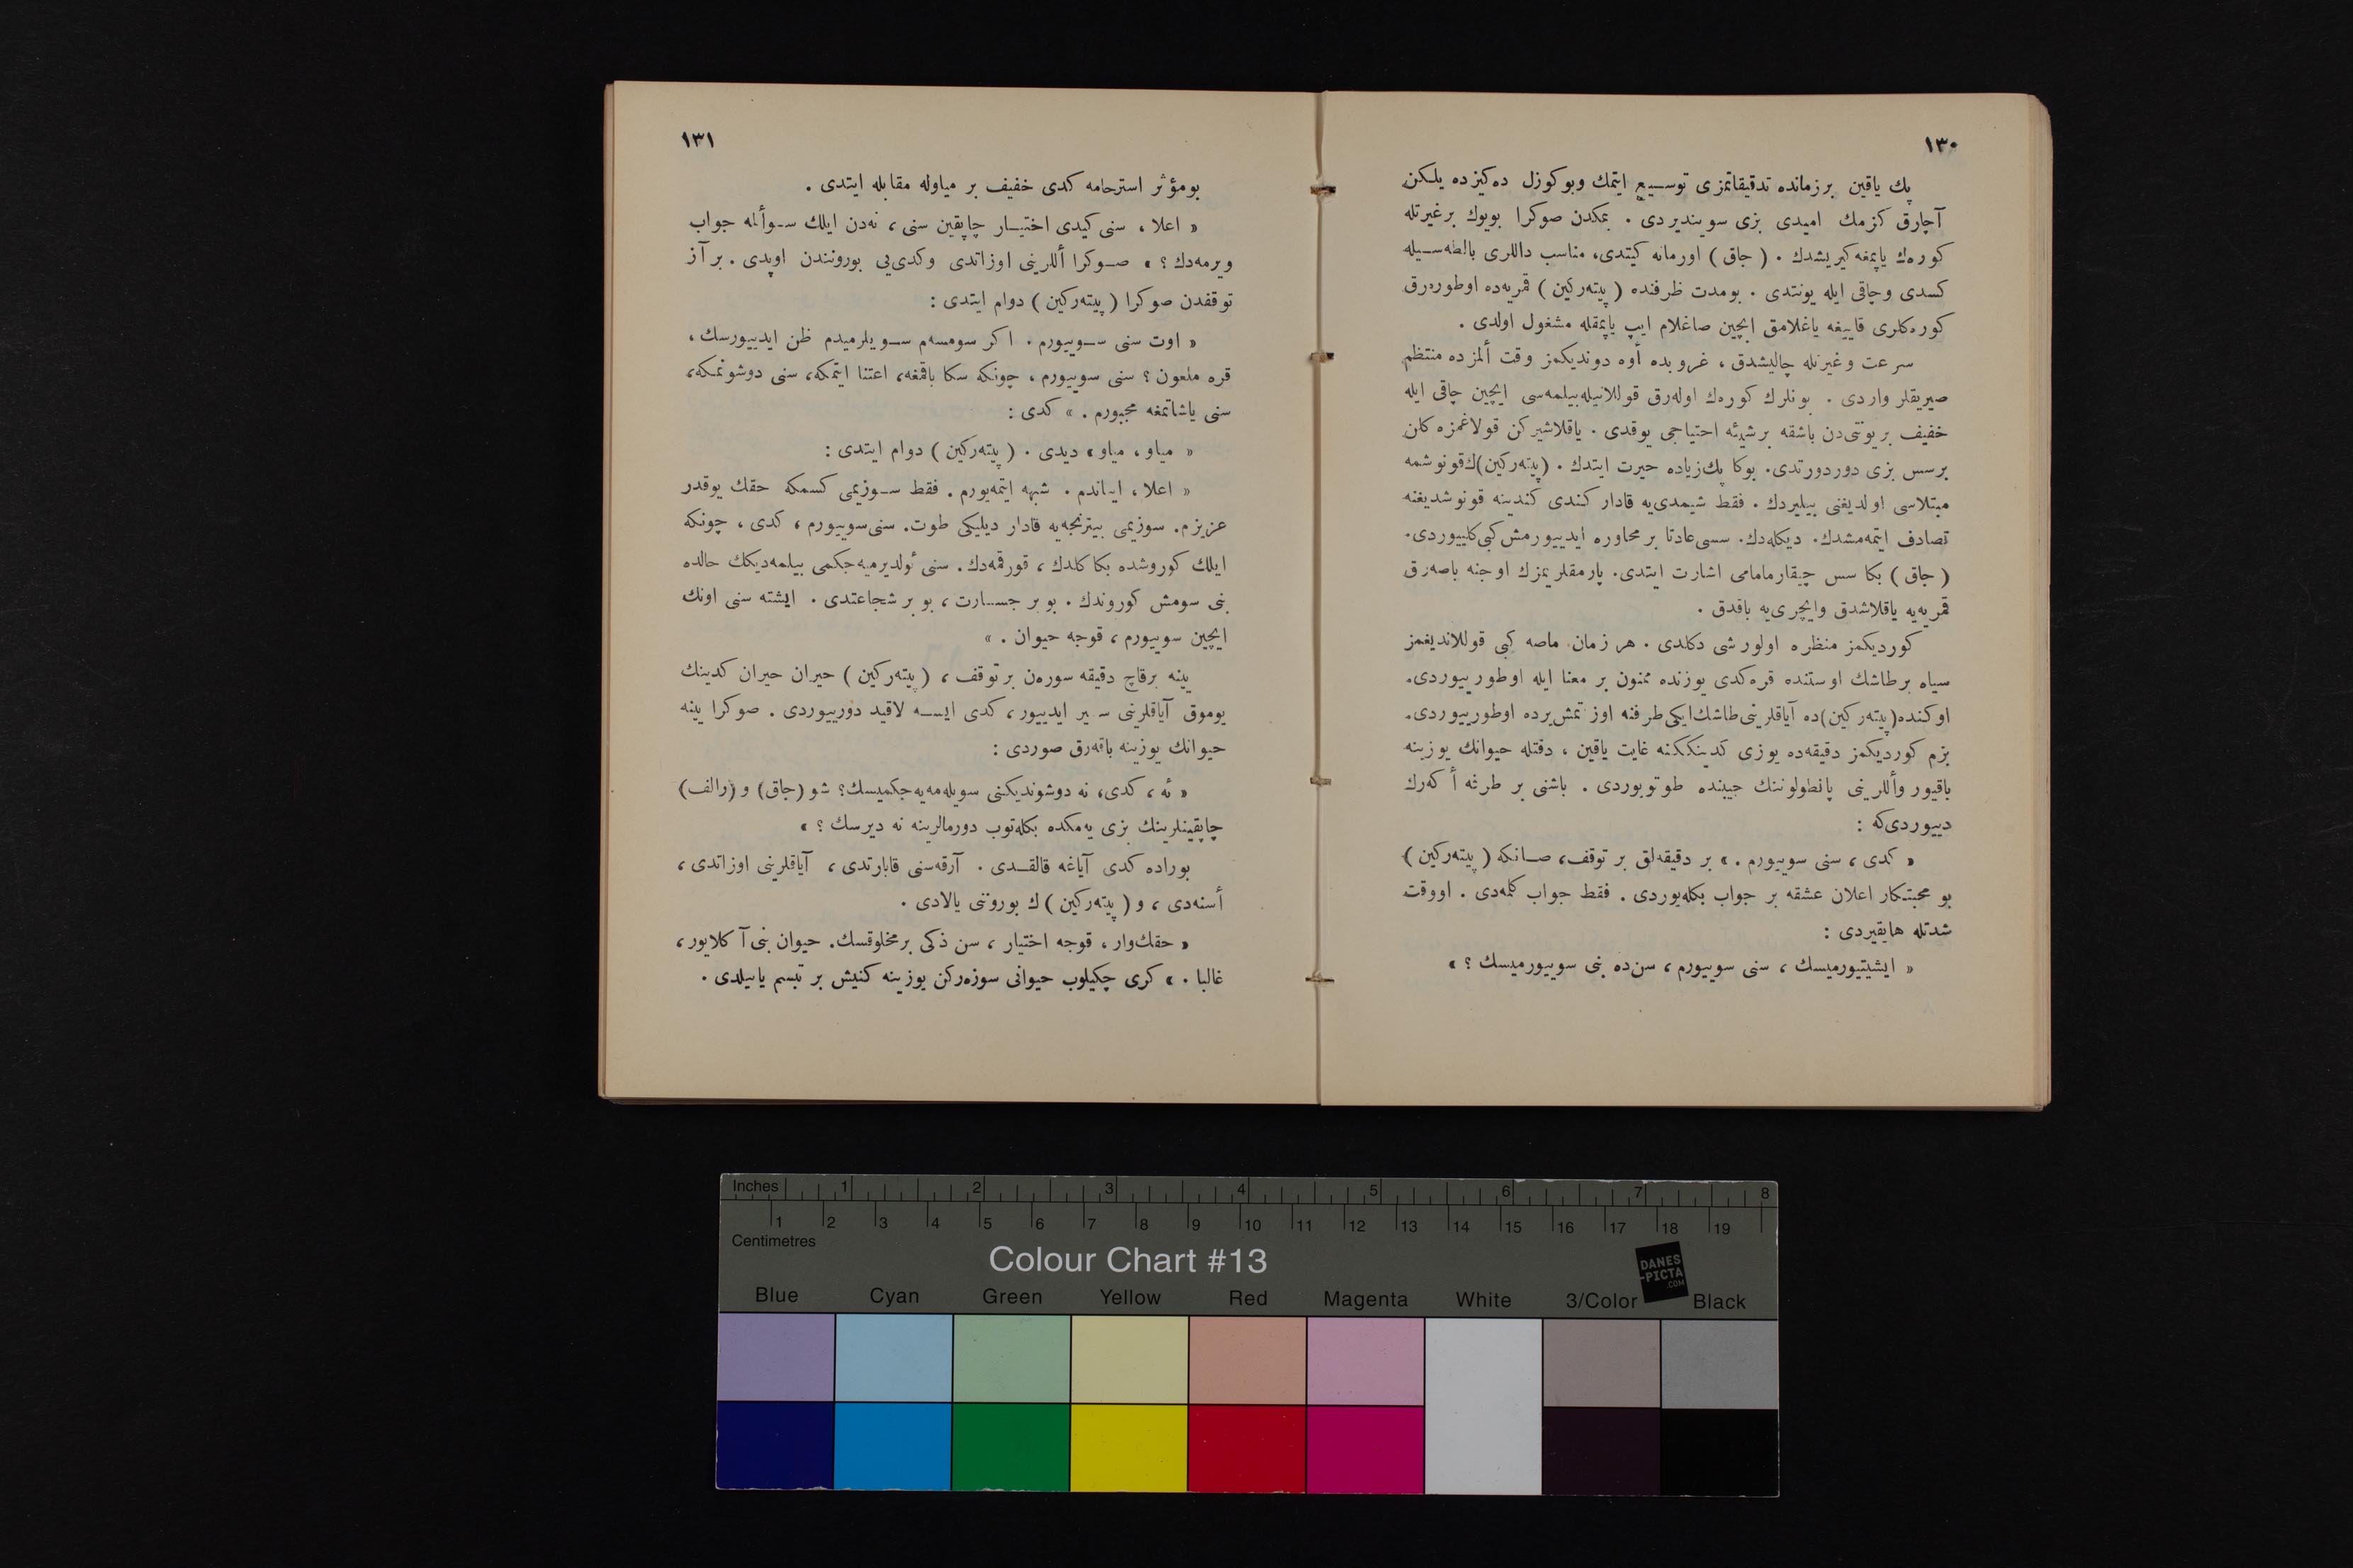 ١٣٠
پك ياقين برزمانده تدقيقاتمزى توسيع ايتمك وبوكوزل ده‌كيزده يلكن
آچارق كزمك اميدى بزى سوينديردى . يمكدن صوكرا بويوك برغيرتله
كوره‌ك ياپمغه كيريشدك . ( جاق ) اورمانه كيتدى، مناسب داللرى بالطه‌سيله
كسدى وچاقى ايله يونتدى . بومدت ظرفنده ( پيته‌ركين ) قمريه‌ده اوطوره‌رق
كوره‌كلرى قاييغه ياغلامق ايچين صاغلام ايپ ياپمقله مشغول اولدى .
سرعت وغيرتله چاليشدق ، غروبده أوه دونديكمز وقت ألمزده منتظم
صيريقلر واردى . بونلرك كوره‌ك اوله‌رق قوللانيله‌بيلمه‌سى ايچين چاقى ايله
خفيف بريونتى‌دن باشقه برشيئه احتياجى يوقدى . ياقلاشيركن قولاغمزه كلن
برسس بزى دوردورتدى. بوكا پك‌زياده حيرت ايتدك . (پيته‌ركين)ك‌قونوشمه
مبتلاسى اولديغنى بيليردك . فقط شيمدى‌يه قادار كندى كندينه قونوشديغنه
تصادف ايتمه‌مشدك. ديكله‌دك. سسى‌عادتا بر محاوره ايدييورمش‌كبى‌كلييوردى.
( جاق ) بكا سس چيقارمامامى اشارت ايتدى. پارمقلريمزك اوجنه باصه‌رق
قمريه‌يه ياقلاشدق وايچرى‌يه باقدق .
كورديكمز منظره اولور شى دكلدى . هر زمان ماصه كبى قوللانديغمز
سياه برطاشك اوستنده قره‌كدى يوزنده ممنون بر معنا ايله اوطورييوردى.
اوكنده(پيته‌ركين)ده آياقلرينى‌طاشك‌ايكى‌طرفنه اوزتمش‌يرده اوطورييوردى.
بزم كورديكمز دقيقه‌ده يوزى كدينككنه غايت ياقين ، دقتله حيوانك يوزينه
باقيور وأللرينى پانطولوننك جيبنده طوتويوردى . باشنى بر طرفه أكه‌رك
دييوردى‌كه :
« كدى ، سنى سوييورم . » بر دقيقه‌لق بر توقف، صانكه ( پيته‌ركين )
بو محبتكار اعلان عشقه بر جواب بكله‌يوردى . فقط جواب كلمه‌دى . اووقت
شدتله هايقيردى :
« ايشيتييورميسك ، سنى سوييورم ، سن‌ده بنى سوييورميسك ؟ »
١٣١
بومؤثر استرحامه كدى خفيف بر مياوله مقابله ايتدى .
« اعلا ، سنى كيدى اختيار چاپقين سنى ، نه‌دن ايلك سوألمه جواب
ويرمه‌دك ؟ » صوكرا أللرينى اوزاتدى وكدى‌يى بوروننندن اوپدى . بر آز
توقفدن صوكرا ( پيته‌ركين ) دوام ايتدى :
« اوت سنى سوييورم . اكر سومسه‌م سويلرميدم ظن ايدييورسك ،
قره ملعون ؟ سنى سوييورم ، چونكه سكا باقمغه، اعتنا ايتمكه، سنى دوشونمكه،
سنى ياشاتمغه مجبورم . » كدى :
« مياو ، مياو » ديدى . ( پيته‌ركين ) دوام ايتدى :
« اعلا ، ايناندم . شبهه ايتمه‌يورم . فقط سوزيمى كسمكه حقك يوقدر
عزيزم. سوزيمى بيترنجه‌يه قادار ديليكى طوت. سنى‌سوييورم ، كدى ، چونكه
ايلك كوروشده بكا كلدك ، قورقمه‌دك. سنى ئولديرميه‌جكمى بيلمه‌ديكك حالده
بنى سومش كوروندك . بو بر جسارت ، بو بر شجاعتدى . ايشته سنى اونك
ايچين سوييورم ، قوجه حيوان . »
يينه برقاچ دقيقه سوره‌ن برتوقف ، ( پيته‌ركين ) حيران حيران كدينك
يوموق آياقلرينى سير ايدييور ، كدى ايسه لاقيد دورييوردى . صوكرا يينه
حيوانك يوزينه باقه‌رق صوردى :
« ئه ، كدى، نه دوشونديكنى سويله‌مه‌يه‌جكميسك؟ شو (جاق) و (رالف)
چاپقينلرينك بزى يه‌مكده بكله‌توب دورمالرينه نه ديرسك ؟ »
بوراده كدى آياغه قالقدى . آرقه‌سنى قابارتدى ، آياقلرينى اوزاتدى ،
أسنه‌دى ، و ( پيته‌ركين ) ك بوروننى يالادى .
« حقك‌وار ، قوجه اختيار ، سن ذكى برمخلوقسك. حيوان بنى آكلايور ،
غالبا . » كرى چكيلوب حيوانى سوزه‌ركن يوزينه كنيش بر تبسم ياييلدى .
Inches 1 2 3 4 5 6 7 8
1 2 3 4 5 6 7 8 9 10 11 12 13 14 15 16 17 18 19
Centimetres
Colour Chart #13
DANES
-PICTA
.COM
Blue Cyan Green Yellow Red Magenta White 3/Color Black